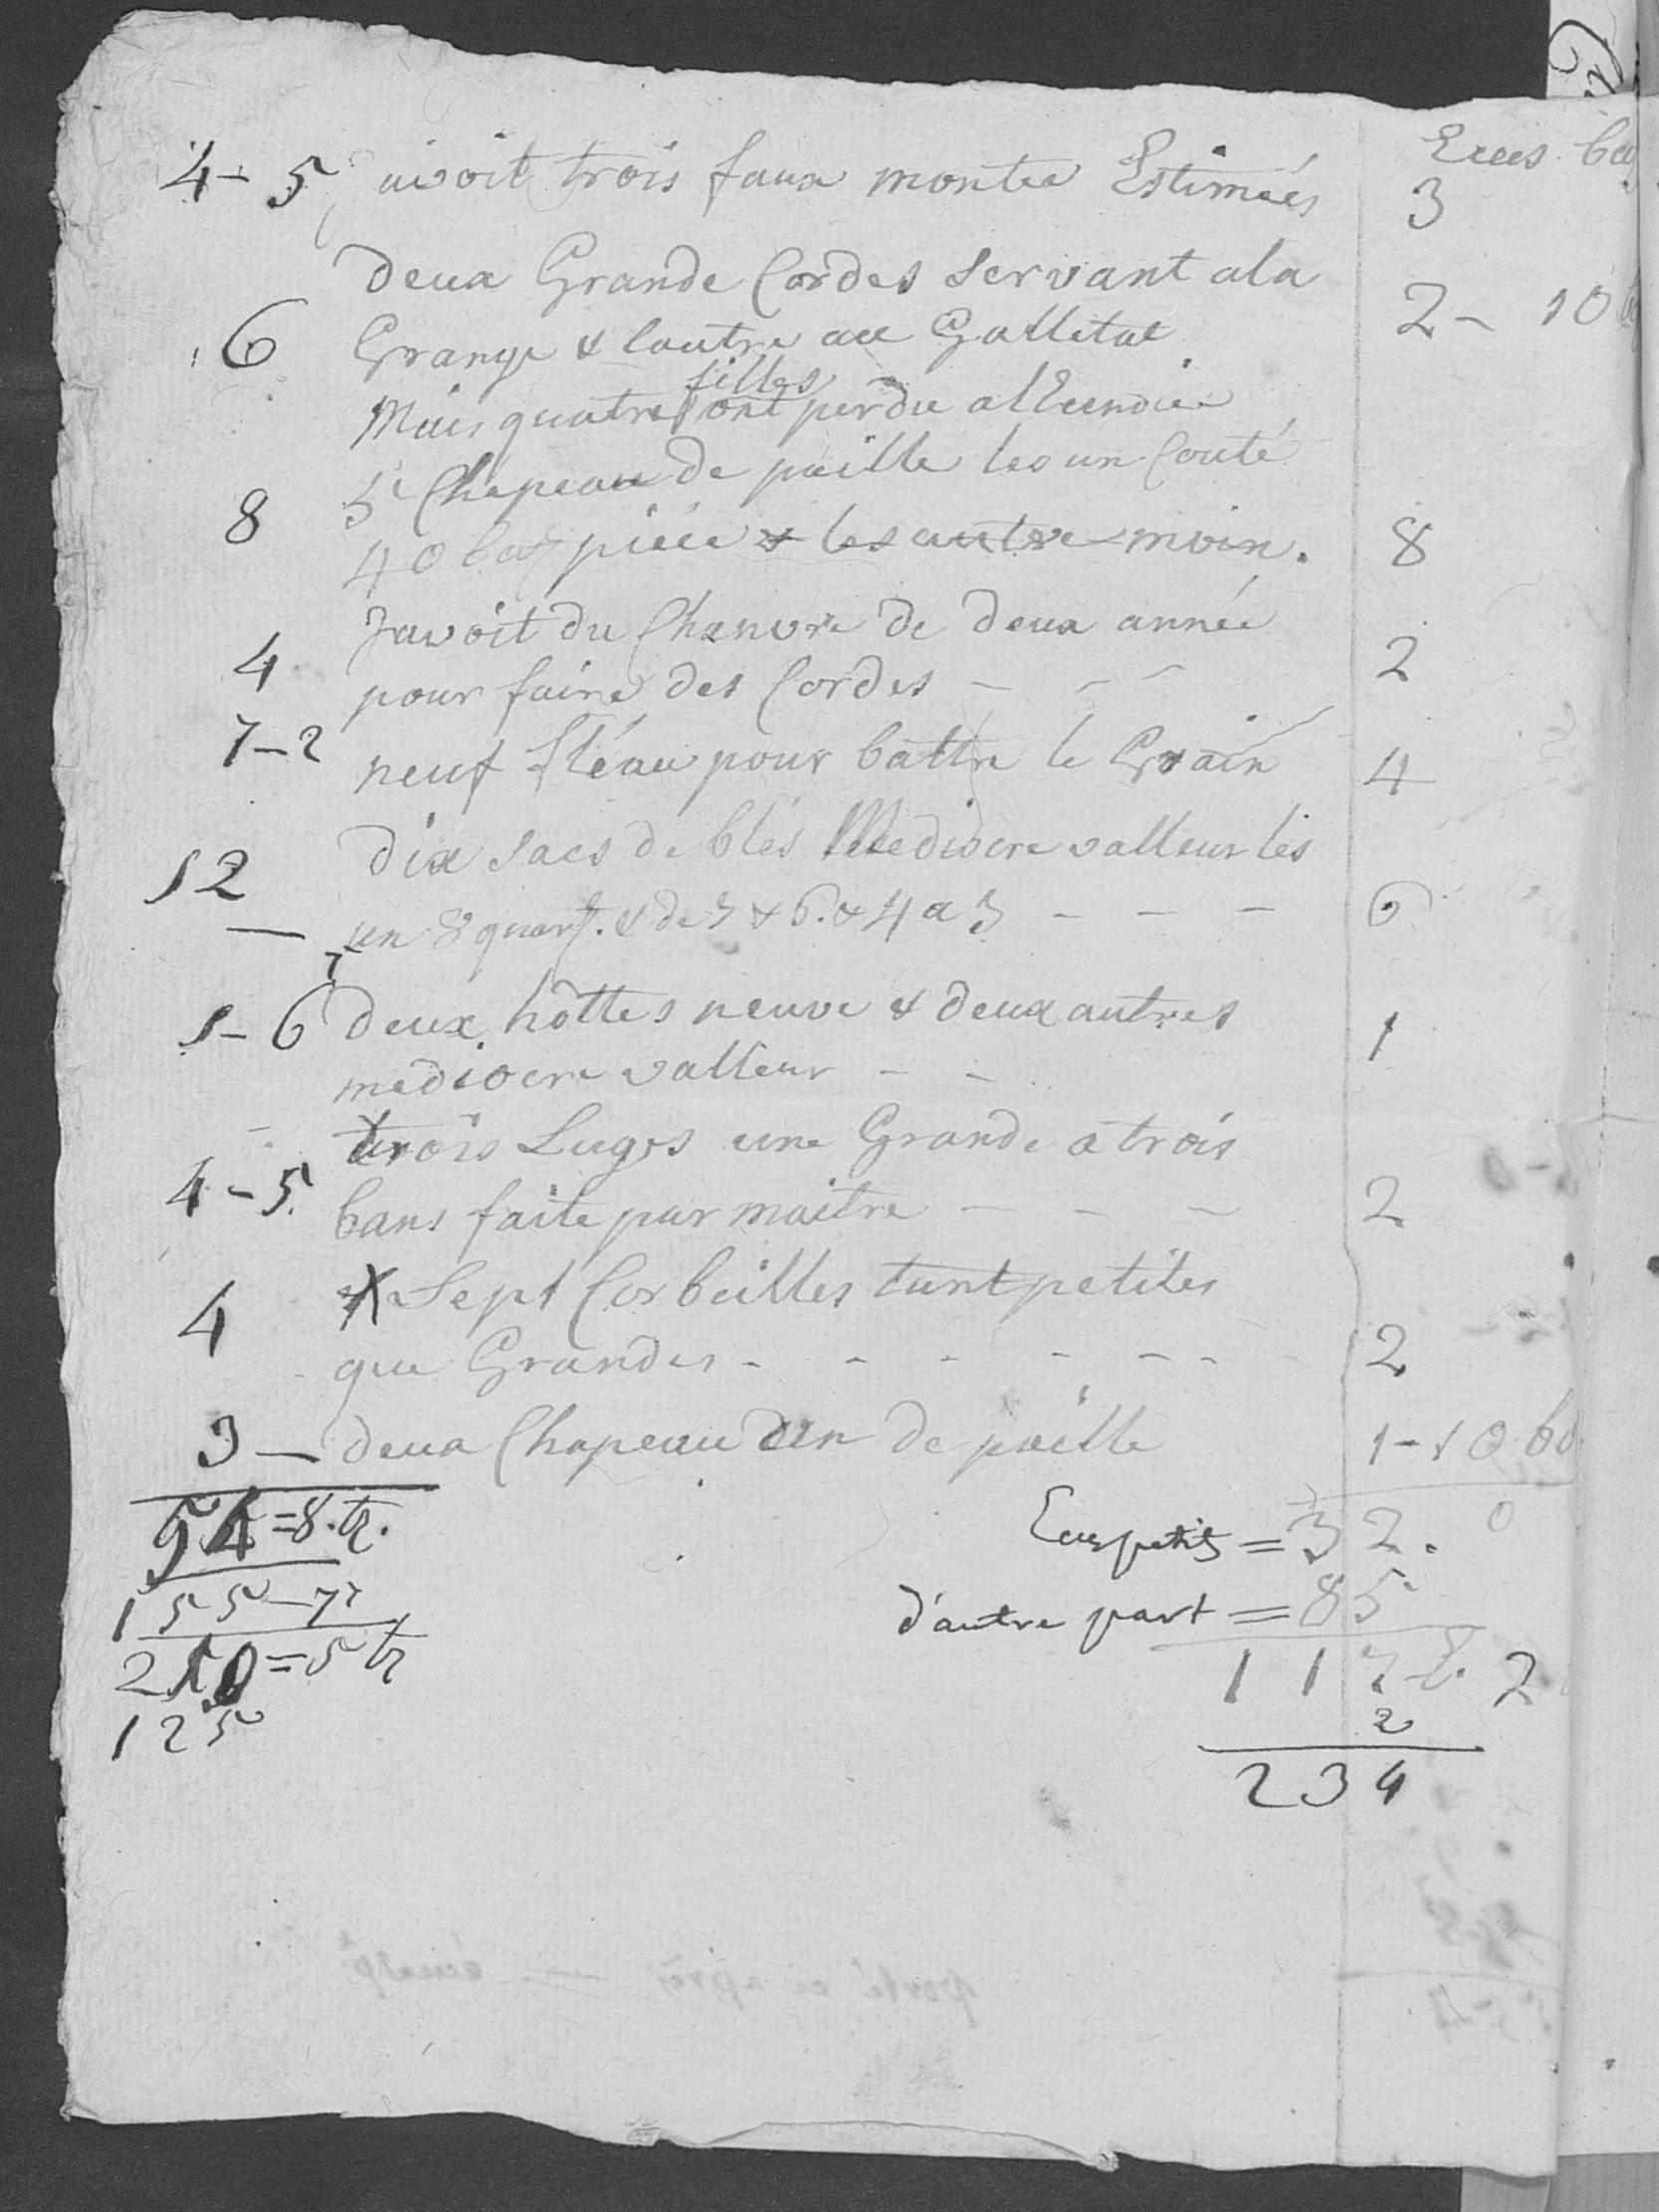 Ecus batz
4 - 5 avoit trois faux montee Estimeés 3
deux Grande Cordes Servant ala
6 Grange & lautre au Galletat 2 - 10
filles
Mais quatre ont perdu a
5 Chapeau de paille les un Couté
8 40 batz piéce & les autre moin. 8
Javoit du Chanvre de deux année
4 pour faire des Cordes - - - 2
7 - 2 neuf fléau pour battre le Grain 4
dix sacs de blés Mediocre valleur les
12 — un 8 quart. & de 7 & 6. & 4 a 3 - - - 6
1 - 6 deux hôttes neuve & deux autres 1
mediocre valleur - -
trois Luges une Grande a trois
4 - 5. bans faite par maitre - - - 2
4 Sept Corbeilles tant petites
que Grandes - - - - - - 2
3 — deux Chapeau din de paille 1 - 10 bb
54 = 8. tz. Ecus petits = 32. 0
155 - 7 d'autre part = 85
210 = 5 tz 117 2
125 2
234